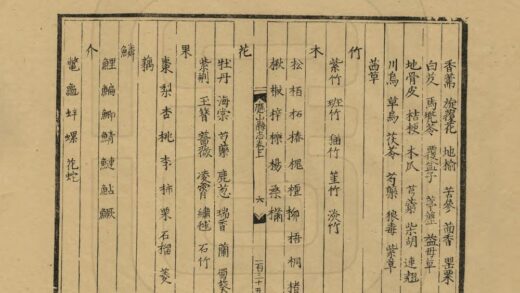 香薷 旋覆花 地榆 苦參 茴香 罌粟
白芨 馬兜苓 覆盆子 萆薢 益母草
地骨皮 桔梗 木瓜 芎藭 柴胡 連翹
川烏 草烏 茯苓 芍藥 狼毒 紫草
茵草
竹
紫竹 班竹 貓竹 筀竹 淡竹
木
松 栢 柘 椿 槐 檀 柳 梧 桐 楮
楸 椒 梓 櫟 楊 桑
應山縣志卷上 六
花
牡丹 海棠 芍藥 鹿葱 瑞香 蘭 蜀葵
紫荆 玉簪 薔薇 凌霄 繡毬 石竹
果
棗 梨 杏 桃 李 柿 栗 石榴 菱
藕
鱗
鯉 鯿 鯽 鯖 鰱 鮎 鱖
介
鼈 龜 蚌 螺 花蛇